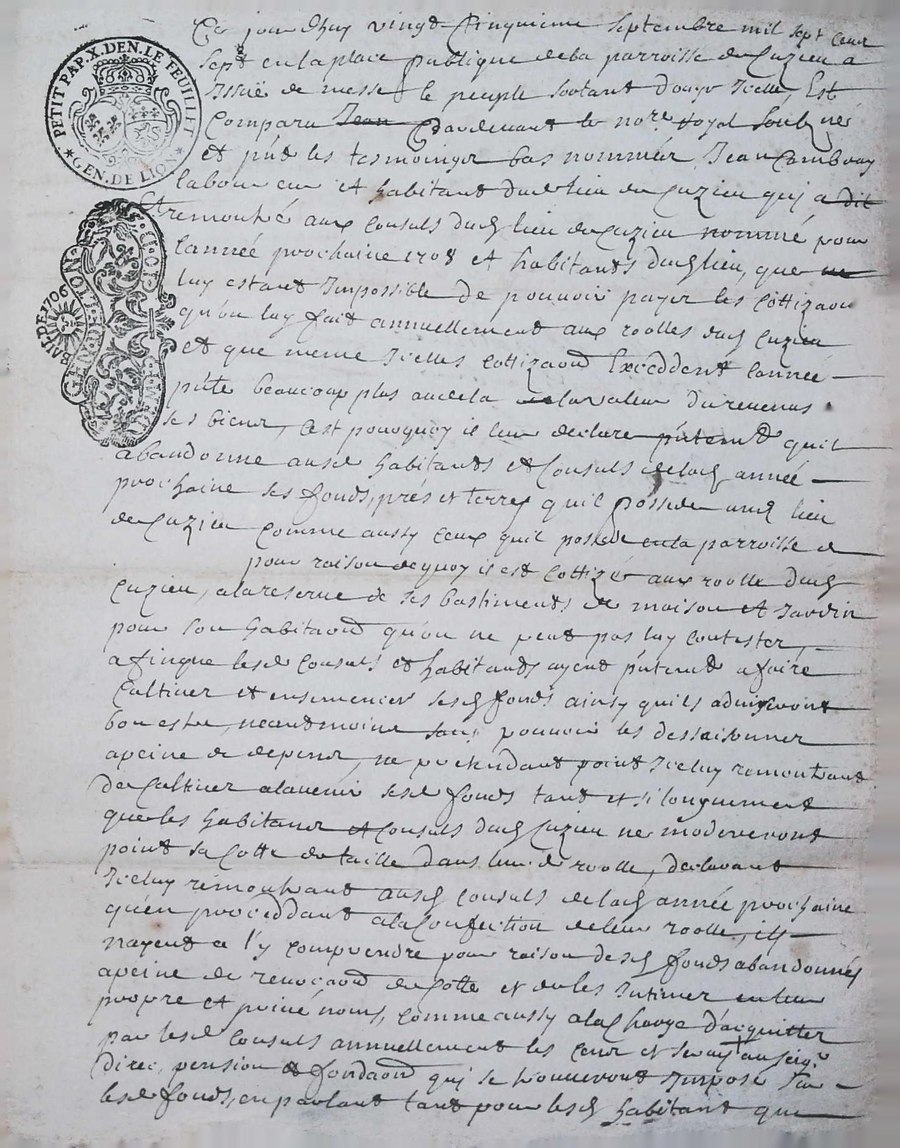 PETIT PAP. X. DEN. LE FEUILLET
GEN. DE LION
BAIL DE 1706
Ce jourdhuy vingt cinquieme septembre mil sept cent
sept en la place publique de la parroisse de Cuzieu a
Issüe de messe le peuple sortant d'ouyr Icelle, Est
comparu Jean pardevant le nore royal soubzné
et pnts les tesmoingz bas nommez Jean
laboureur et habitant dud lieu de Cuzieu qui a dit
Et remontré aux consuls dud lieu de Cuzieu nommé pour
l'année prochaine 1708 et habitants dud lieu, que
luy estant Impossible de pouvoir payer les cottizaons
qu'on luy fait annuellement aux roolles dud Cuzieu
et que meme Icelles cottizaons Exceddent l'année
pnte beaucoup plus audela la valleur du revenus
ses biens, C'est pourquoy il leur declare quil
abandonne ausd habitants et Consuls de lad année
prochaine ses fonds, prés et terres qu'il possede aud lieu
de Cuzieu comme aussy ceux quil possede en la parroisse de
pour raison dequoy il est cottizé aux roolle dud
Cuzieu, a la reserve de ses bastiments de maison et Jardin
pour son habitaon qu'on ne peut pas luy contester,
afinque lesd Consuls et habitants ayent a faire
Cultiver et ensemencer sesd fonds ainsy quils adviseront
bon estre, neantmoins sans pouvoir les dessaisonner
a peine de depens, ne pretendant point Iceluy remontrant
de Cultiver a l'avenir sesd fonds tant et si longuement
que les habitans et Consuls dud Cuzieu ne modereront
point sa cotte de taille dans leurd roolle, declarant
Iceluy remontrant ausd Consuls de lad année prochaine
qu'en proceddant a la Confection de leur roolle, ils
nayent a l'y comprendre pour raison desd fonds abandonnés
a peine de revocaon de cotte et de les Intimer en leur
propre et privé noms, comme aussy a la charge d'acquitter
par lesd Consuls annuellement les cens et servis au seigr
direc, pension et fondaons qui se trouveront Imposé sur
lesd fonds, en parlant tant pour lesd habitant que